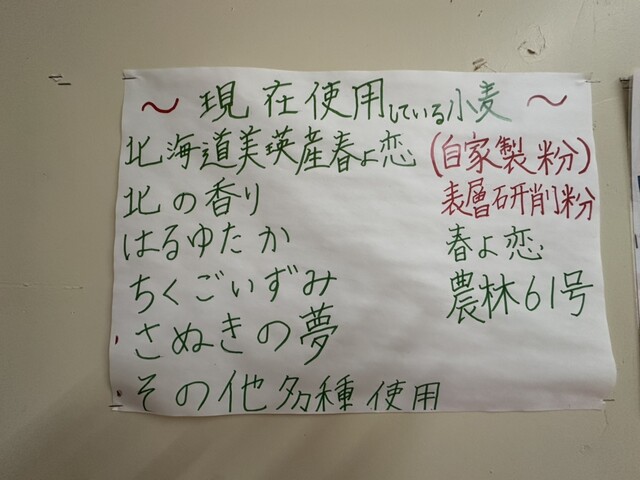 ～現在使用している小麦～
北海道美瑛産春よ恋(自家製粉)
北の香り 表層研削粉
はるゆたか 春よ恋
ちくごいずみ 農林61号
さぬきの夢
その他多種使用